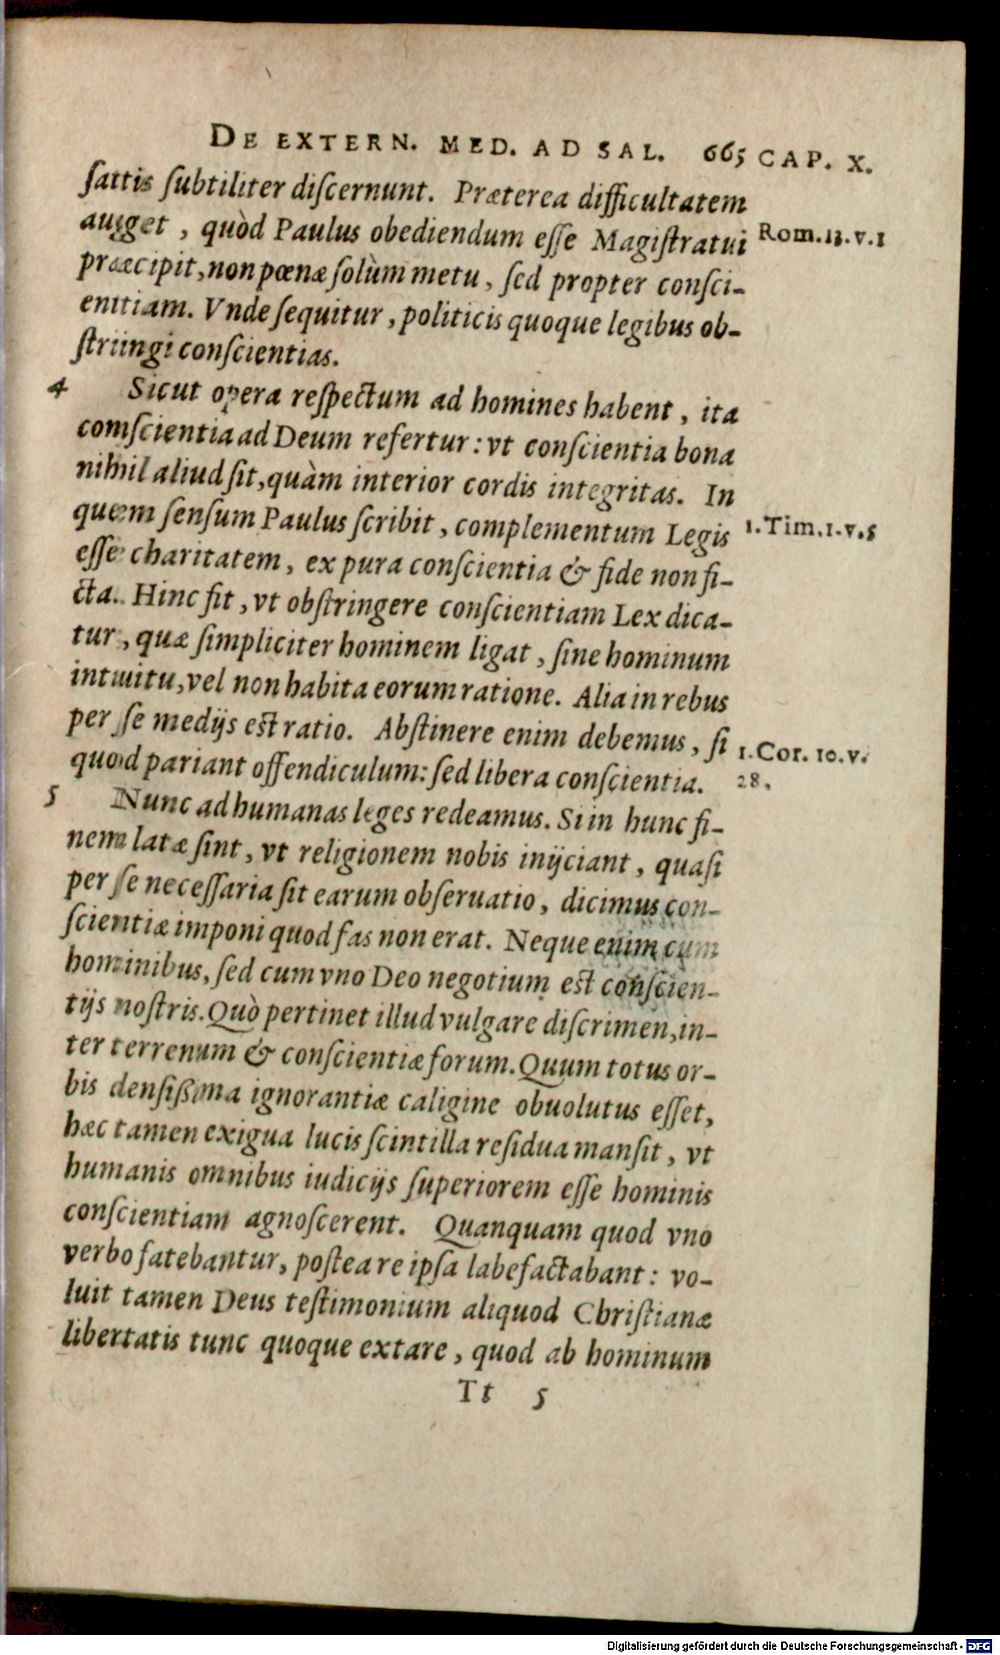 DE EXTERN. MED. AD SAL. 665 CAP. X.
ſatis ſubtiliter diſcernunt. Præterea difficultatem
auget, quòd Paulus obediendum eſſe Magiſtratui Rom.13.v.1
præcipit, non pœnæ ſolùm metu, ſed propter conſci-
entiam. Vnde ſequitur, politicis quoque legibus ob-
ſtringi conſcientias.
4 Sicut opera reſpectum ad homines habent, ita
conſcientia ad Deum refertur: vt conſcientia bona
nihil aliud ſit, quàm interior cordis integritas. In
quem ſenſum Paulus ſcribit, complementum Legis 1.Tim.1.v.5
eſſe charitatem, ex pura conſcientia & fide non fi-
cta. Hinc fit, vt obſtringere conſcientiam Lex dica-
tur, quæ ſimpliciter hominem ligat, ſine hominum
intuitu, vel non habita eorum ratione. Alia in rebus
per ſe medijs eſt ratio. Abſtinere enim debemus, ſi 1.Cor. 10.v.
quod pariant offendiculum: ſed libera conſcientia. 28.
5 Nunc ad humanas leges redeamus. Si in hunc fi-
nem latæ ſint, vt religionem nobis inijciant, quaſi
per ſe neceſſaria ſit earum obſeruatio, dicimus con-
ſcientiæ imponi quod fas non erat. Neque enim cum
hominibus, ſed cum vno Deo negotium eſt conſcien-
tijs noſtris. Quò pertinet illud vulgare diſcrimen, in-
ter terrenum & conſcientiæ forum. Quum totus or-
bis denſißima ignorantiæ caligine obuolutus eſſet,
hæc tamen exigua lucis ſcintilla reſidua manſit, vt
humanis omnibus iudicijs ſuperiorem eſſe hominis
conſcientiam agnoſcerent. Quanquam quod vno
verbo fatebantur, poſtea re ipſa labefactabant: vo-
luit tamen Deus teſtimonium aliquod Chriſtianæ
libertatis tunc quoque extare, quod ab hominum
Tt 5
Digitalisierung gefördert durch die Deutsche Forschungsgemeinschaft - DFG